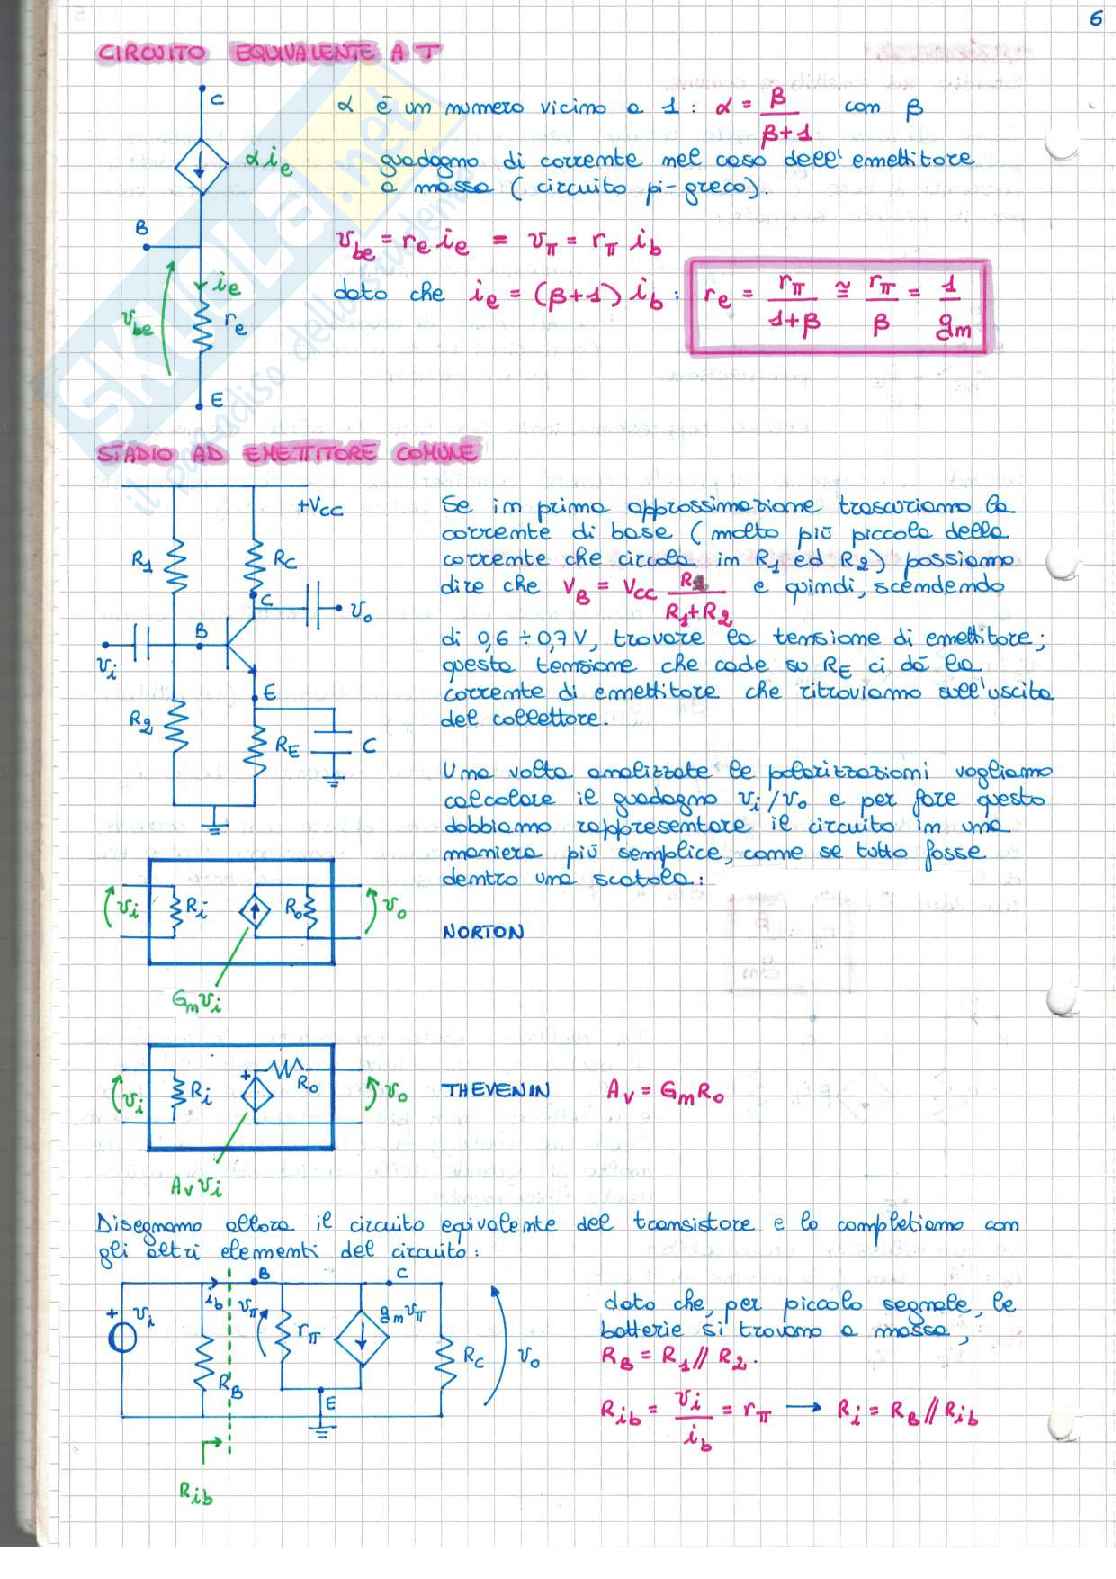 6
CIRCUITO EQUIVALENTE A T
C
α è un numero vicino a 1 : α = β / (β+1) con β
αie
guadagno di corrente nel caso dell' emettitore
a massa ( circuito pi-greco).
B
vbe = re ie = vπ = rπ ib
ie
dato che ie = (β+1) ib : re = rπ / (1+β) ≅ rπ / β = 1 / gm
vbe
re
E
SKUOLA.net
il paradiso dello studente
STADIO AD EMETTITORE COMUNE
+VCC
Se in prima approssimazione trascuriamo la
corrente di base ( molto più piccola della
R1
RC
corrente che circola in R1 ed R2) possiamo
C
vo
dire che VB = VCC R2 / (R1+R2) e quindi, scendendo
B
vi
di 0,6 ÷ 0,7 V, trovare la tensione di emettitore;
questa tensione che cade su RE ci dà la
E
corrente di emettitore che ritroviamo sull'uscita
R2
del collettore.
RE
C
Una volta analizzate le polarizzazioni vogliamo
calcolare il guadagno vi/vo e per fare questo
dobbiamo rappresentare il circuito in una
maniera più semplice, come se tutto fosse
dentro una scatola:
vi
Ri
Ro
vo
NORTON
Gmvi
+
vi
Ri
Ro
vo
THEVENIN AV = GmRo
AVvi
Disegnamo allora il circuito eqivalente del transistore e lo completiamo con
gli altri elementi del circuito:
B
C
+
vi
ib
vπ
rπ
gmvπ
RC
vo
RB
E
Rib
dato che, per piccolo segnale, le
batterie si trovano a massa,
RB = R1 // R2.
Rib = vi / ib = rπ → Ri = RB // Rib